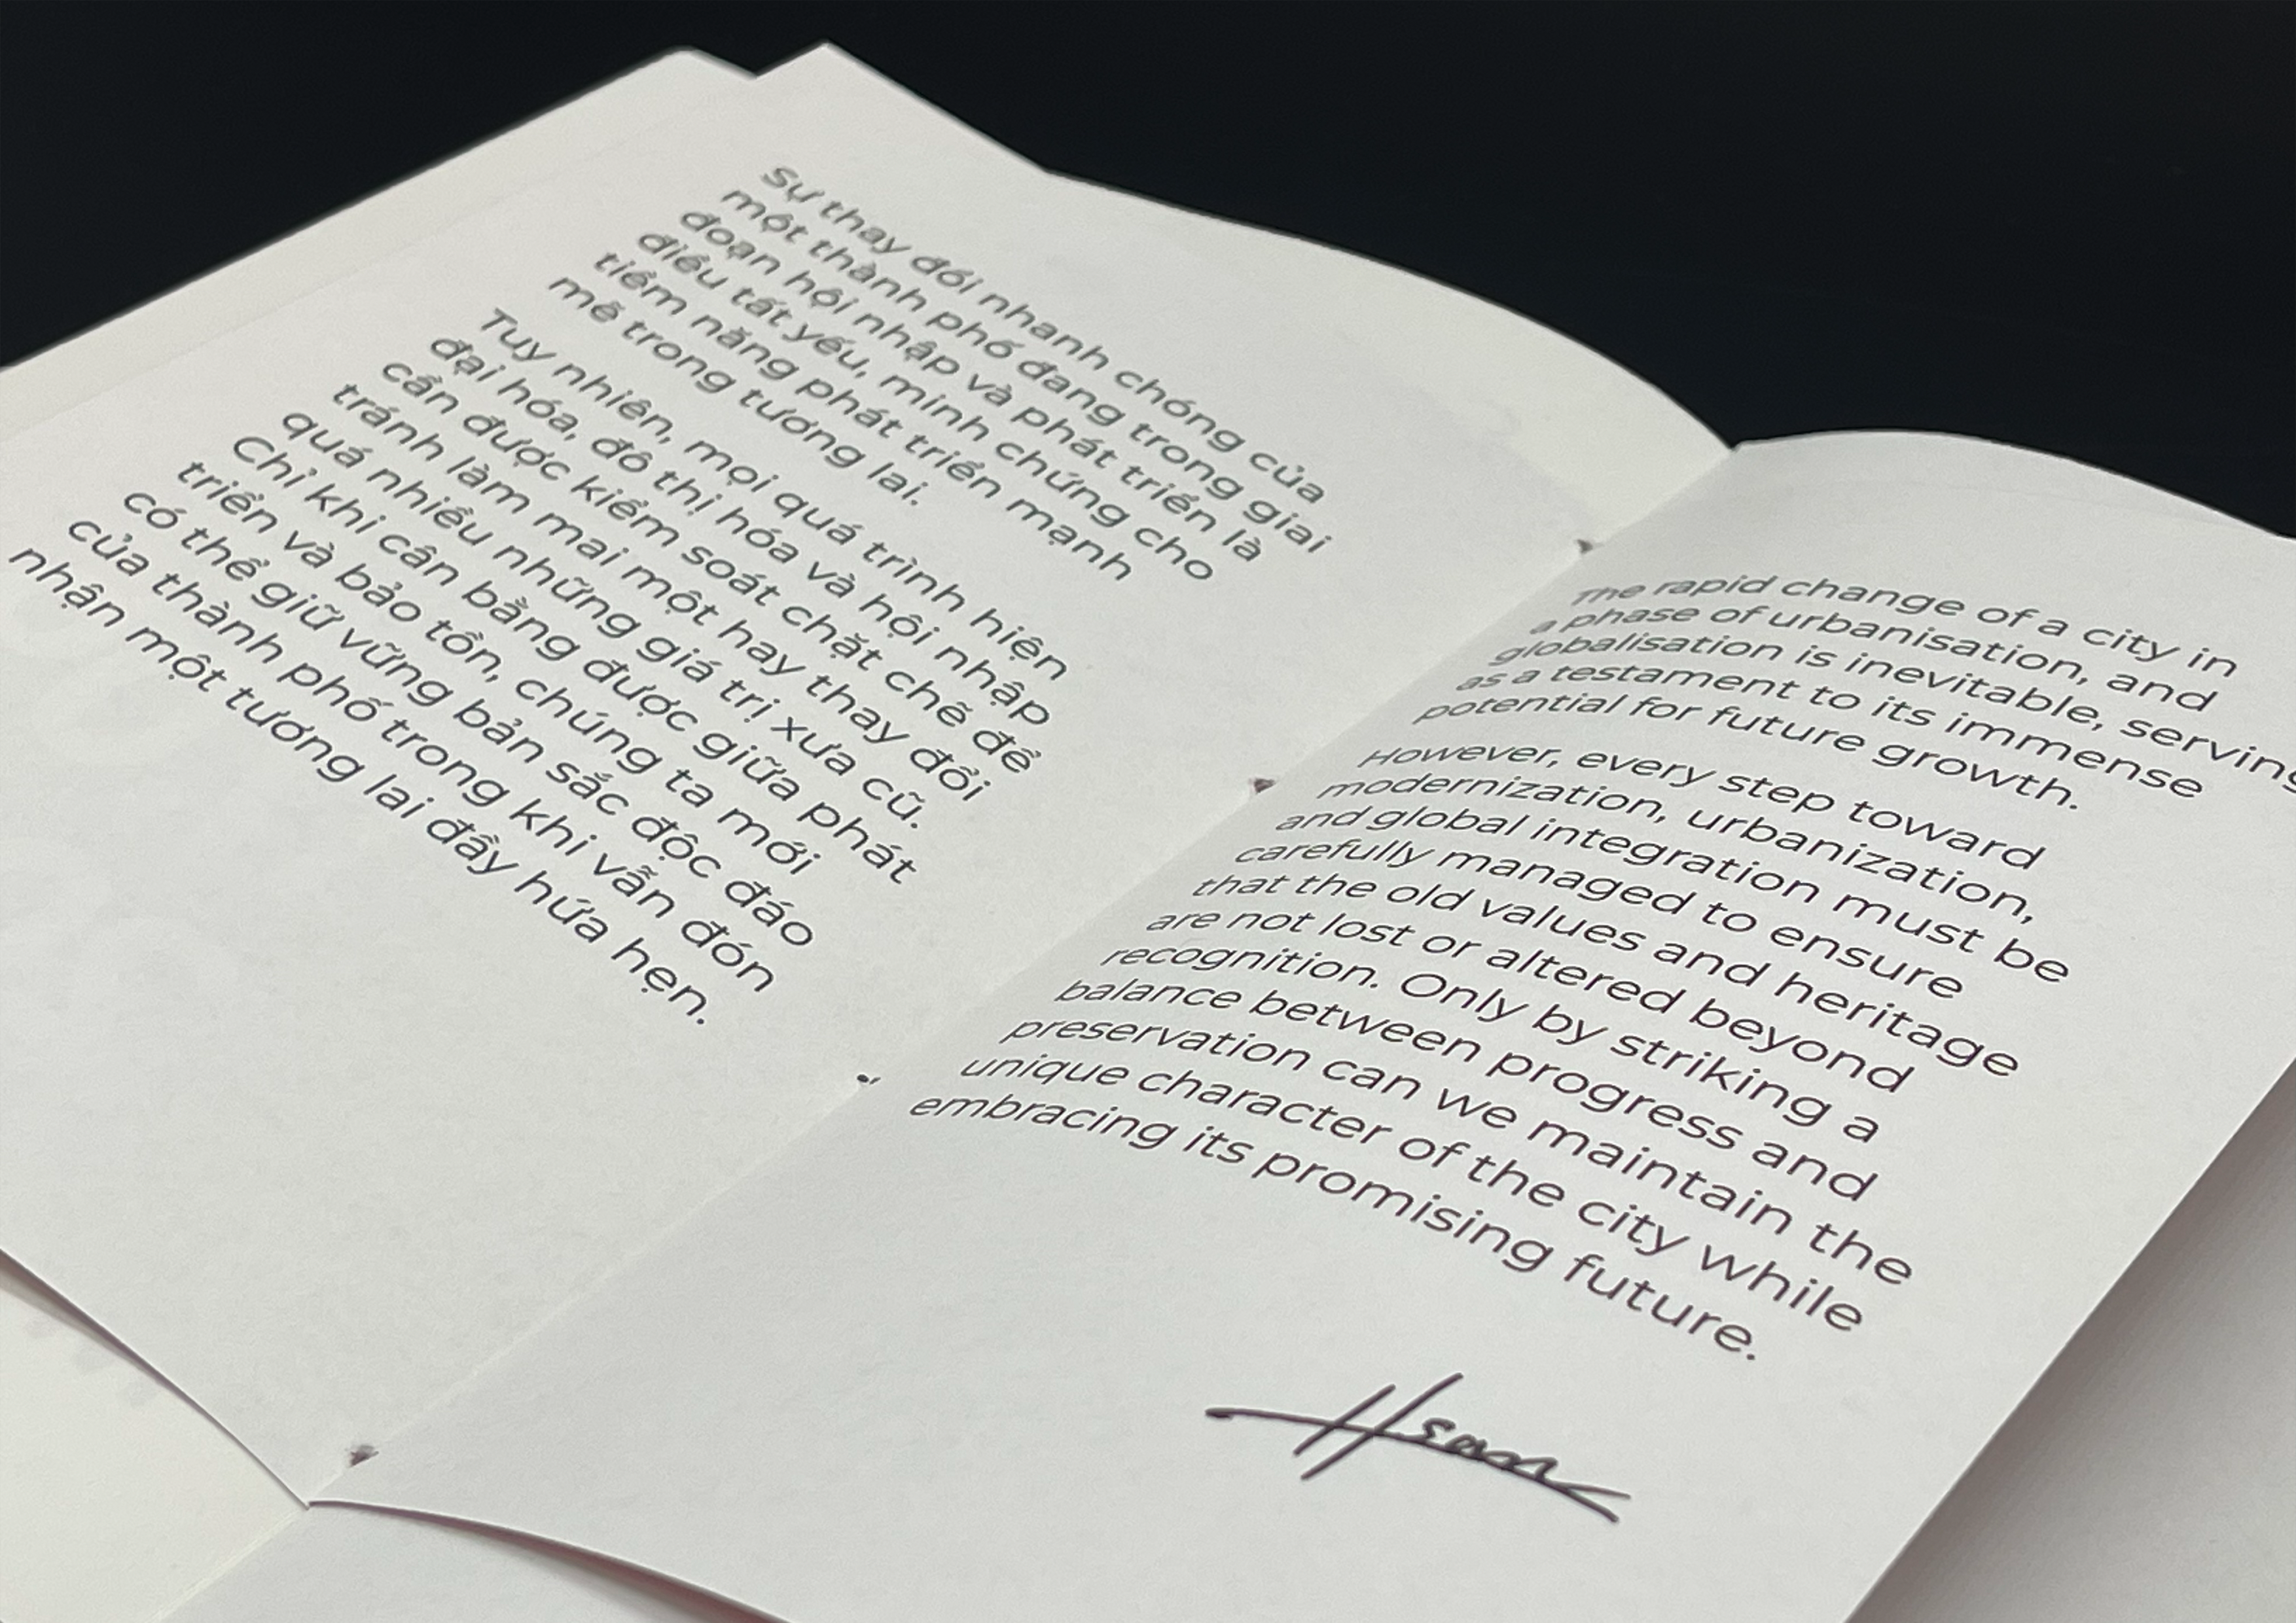 Sự thay đổi nhanh chóng của
một thành phố đang trong giai
đoạn hội nhập và phát triển là
điều tất yếu, minh chứng cho
tiềm năng phát triển mạnh
mẽ trong tương lai.
Tuy nhiên, mọi quá trình hiện
đại hóa, đô thị hóa và hội nhập
cần được kiểm soát chặt chẽ để
tránh làm mai một hay thay đổi
quá nhiều những giá trị xưa cũ.
Chỉ khi cân bằng được giữa phát
triển và bảo tồn, chúng ta mới
có thể giữ vững bản sắc độc đáo
của thành phố trong khi vẫn đón
nhận một tương lai đầy hứa hẹn.
The rapid change of a city in
a phase of urbanisation, and
globalisation is inevitable, serving
as a testament to its immense
potential for future growth.
However, every step toward
modernization, urbanization,
and global integration must be
carefully managed to ensure
that the old values and heritage
are not lost or altered beyond
recognition. Only by striking a
balance between progress and
preservation can we maintain the
unique character of the city while
embracing its promising future.